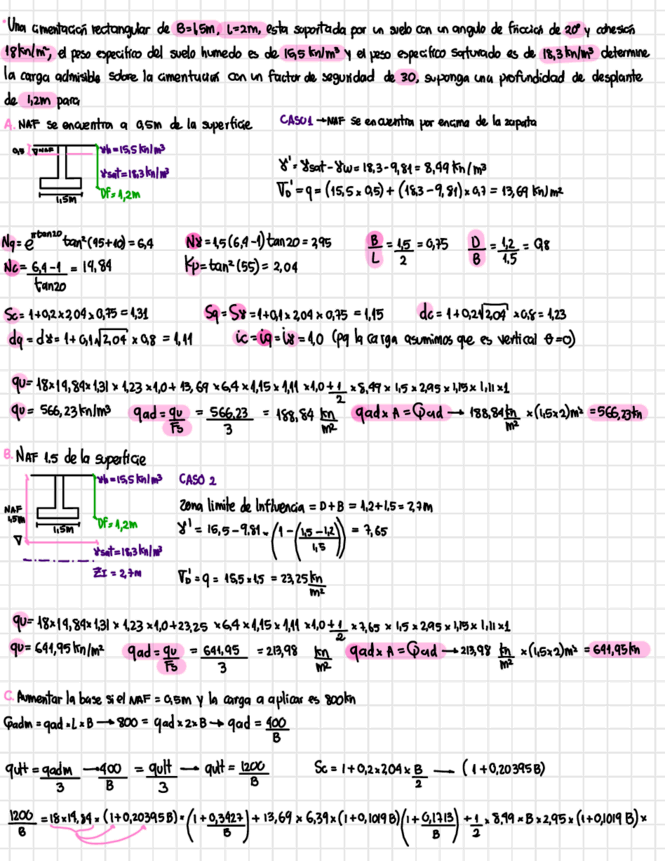 Una cimentación rectangular de B=1,5m, L=2m, esta soportada por un suelo con un angulo de fricción de 20° y cohesión
18kn/m², el peso especifico del suelo humedo es de 15,5 kn/m³ y el peso especifico saturado es de 18,3 kn/m³ determine
la carga admisible sobre la cimentación con un factor de seguridad de 30, suponga una profundidad de desplante
de 1,2m para
A. NAF se encuentra a 0,5m de la superficie CASO 1 → NAF se encuentra por encima de la zapata
0,5 ▽ NAF γh=15,5 kn/m³
γsat=18,3 kn/m³
Df=1,2m
1,5m
γ' = γsat - γw = 18,3 - 9,81 = 8,49 kn/m³
σ₀' = q = (15,5 x 0,5) + (18,3 - 9,81) x 0,7 = 13,69 kn/m²
Nq = e^πtan20 tan²(45+10) = 6,4 Nγ = 1,5 (6,4-1) tan20 = 2,95 B/L = 1,5/2 = 0,75 D/B = 1,2/1,5 = 0,8
Nc = 6,4-1/tan20 = 14,84 Kp = tan²(55) = 2,04
Sc = 1+0,2x2,04x0,75 = 1,31 Sq = Sγ = 1+0,1x2,04x0,75 = 1,15 dc = 1+0,2√2,04 x0,8 = 1,23
dq = dγ = 1+0,1√2,04 x0,8 = 1,11 ic = iq = iγ = 1,0 (pq la carga asumimos que es vertical θ=0)
qu = 18x14,84x1,31 x 1,23 x1,0 + 13,69 x6,4 x1,15 x 1,11 x1,0 + 1/2 x 8,49 x 1,5 x2,95 x1,15x 1,11x1
qu = 566,23 kn/m³ qad = qu/Fs = 566,23/3 = 188,84 kn/m² qad x A = Qad → 188,84 kn/m² x (1,5x2)m² = 566,23kn
B. NAF 1.5 de la superficie
γh=15,5 kn/m³ CASO 2
NAF
1,5m
▽
1,5m
Df=1,2m
γsat=18,3 kn/m³
ZI = 2,7m
Zona limite de Influencia = D+B = 1,2+1,5 = 2,7m
γ' = 15,5-9.81 · (1-((1,5-1,2)/1,5)) = 7,65
σ₀' = q = 15,5 x 1,5 = 23,25 kn/m²
qu = 18x14,84x1,31 x 1,23 x1,0+23,25 x6,4 x1,15 x 1,11 x1,0 + 1/2 x 7,65 x 1,5 x2,95 x1,15x 1,11x1
qu = 641,95 kn/m² qad = qu/Fs = 641,95/3 = 213,98 kn/m² qad x A = Qad → 213,98 kn/m² x (1,5x2)m² = 641,95kn
C. Aumentar la base si el NAF = 0,5m y la carga a aplicar es 800kn
Qadm = qad x L x B → 800 = qad x 2 x B → qad = 400/B
qult = qadm/3 → 400/B = qult/3 → qult = 1200/B Sc = 1+0,2x2,04 x B/2 — (1+0,20395B)
1200/B = 18x14,84 x (1+0,20395B) x (1+0,3427/B) + 13,69 x 6,39 x (1+0,1019B)(1+0,1713/B) + 1/2 x 8,49 x B x 2,95 x (1+0,1019B) x